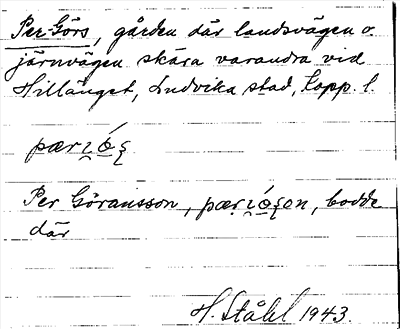 Per Görs, gården där landsvägen o.
järnvägen skära varandra vid
Hillänget, Ludvika stad, Kopp. l.
Per Göransson, bodde
där
H. Ståhl 1943.